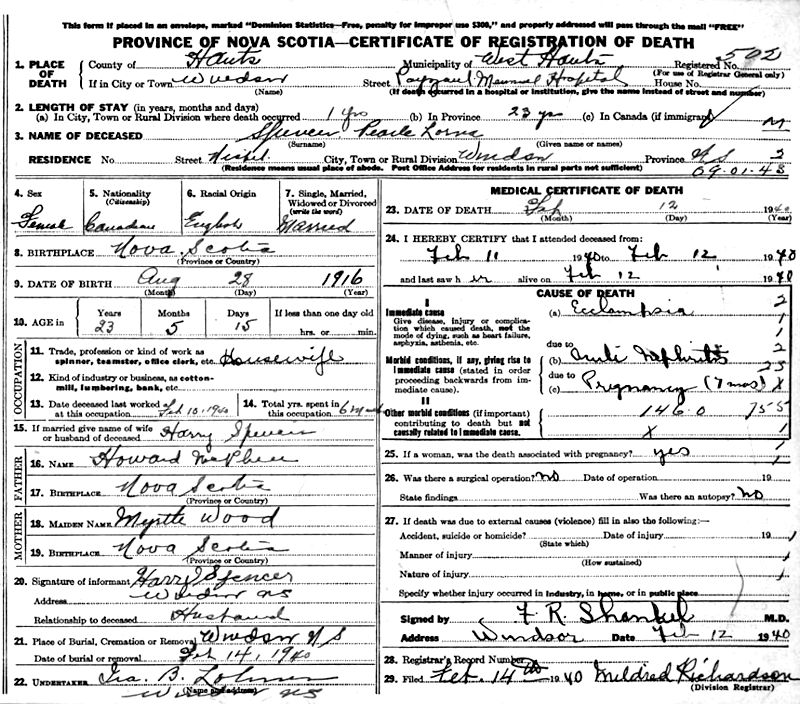 This form if placed in an envelope, marked "Dominion Statistics—Free, penalty for improper use $300," and properly addressed will pass through the mail "FREE"
PROVINCE OF NOVA SCOTIA—CERTIFICATE OF REGISTRATION OF DEATH
1. PLACE OF DEATH
County of Hants Municipality of West Hants Registered No. 592
(For use of Registrar General only)
If in City or Town Windsor Street Payzant Memorial Hospital House No.
(Name) (If death occurred in a hospital or institution, give the name instead of street and number)
2. LENGTH OF STAY (in years, months and days)
(a) In City, Town or Rural Division where death occurred 1 yrs (b) In Province 23 yrs (c) In Canada (if immigrant)
3. NAME OF DECEASED Spencer Pearle Lorna
(Surname) (Given name or names)
RESIDENCE No. Street City, Town or Rural Division Windsor Province N S 2
(Residence means usual place of abode. Post Office Address for residents in rural parts not sufficient) 09.01.43
4. Sex
5. Nationality
(Citizenship)
6. Racial Origin
7. Single, Married, Widowed or Divorced
(write the word)
Female Canadian English Married
8. BIRTHPLACE Nova Scotia
(Province or Country)
9. DATE OF BIRTH Aug 28 1916
(Month) (Day) (Year)
10. AGE in
Years Months Days If less than one day old
23 5 15 hrs. or min.
OCCUPATION
11. Trade, profession or kind of work as
spinner, teamster, office clerk, etc. Housewife
12. Kind of industry or business, as cotton-
mill, lumbering, bank, etc.
13. Date deceased last worked at this occupation Feb 10, 1940
14. Total yrs. spent in this occupation 6
15. If married give name of wife or husband of deceased Harry Spencer
FATHER
16. NAME Howard McPhee
17. BIRTHPLACE Nova Scotia
(Province or Country)
MOTHER
18. MAIDEN NAME Myrtle Wood
19. BIRTHPLACE Nova Scotia
(Province or Country)
20. Signature of informant Harry Spencer
Address Windsor NS
Relationship to deceased Husband
21. Place of Burial, Cremation or Removal Windsor N S
Date of burial or removal Feb 14, 1940
22. UNDERTAKER
(Name and address)
Windsor NS
MEDICAL CERTIFICATE OF DEATH
23. DATE OF DEATH Feb 12 1940
(Month) (Day) (Year)
24. I HEREBY CERTIFY that I attended deceased from:
Feb 11 1940 to Feb 12 1940
and last saw her alive on Feb 12 1940
CAUSE OF DEATH
I
Immediate cause
Give disease, injury or complica-
tion which caused death, not the
mode of dying, such as heart failure,
asphyxia, asthenia, etc.
(a) Ecclampsia
due to
Morbid conditions, if any, giving rise to
immediate cause (stated in order
proceeding backwards from im-
mediate cause).
(b) Nephritis
due to
(c) Pregnancy (7 mos) X
II
Other morbid conditions (if important)
contributing to death but not
causally related to immediate cause.
146.0
X
25. If a woman, was the death associated with pregnancy? yes
26. Was there surgical operation? No Date of operation 19
State findings Was there an autopsy? No
27. If death was due to external causes (violence) fill in also the following:—
Accident, suicide or homicide? Date of injury 19
(State which)
Manner of injury
(How sustained)
Nature of injury
Specify whether injury occurred in industry, in home, or in public place
Signed by F. R. Shankel M.D.
Address Windsor Date Feb 12 1940
28. Registrar's Record Number
29. Filed Feb. 14th 1940 Mildred Richardson
(Division Registrar)